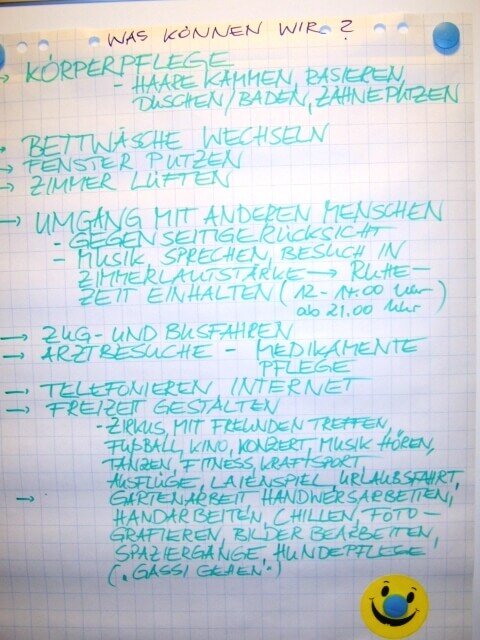 WAS KÖNNEN WIR?
→ KÖRPERPFLEGE
- HAARE KÄMMEN, RASIEREN,
DUSCHEN/BADEN, ZÄHNEPUTZEN
→ BETTWÄSCHE WECHSELN
→ FENSTER PUTZEN
→ ZIMMER LÜFTEN
→ UMGANG MIT ANDEREN MENSCHEN
- GEGENSEITIGE RÜCKSICHT
- MUSIK, SPRECHEN, BESUCH IN
ZIMMERLAUTSTÄRKE → RUHE-
ZEIT EINHALTEN (12-14.00 Uhr
ab 21.00 Uhr)
→ ZUG- UND BUSFAHREN
→ ARZTBESUCHE - MEDIKAMENTE
PFLEGE
→ TELEFONIEREN INTERNET
→ FREIZEIT GESTALTEN
- ZIRKUS, MIT FREUNDEN TREFFEN,
FUßBALL, KINO, KONZERT, MUSIK HÖREN,
TANZEN, FITNESS, KRAFTSPORT
AUSFLÜGE, LAIENSPIEL, URLAUBSFAHRT,
→ GARTENARBEIT HANDWERSARBEITEN,
HANDARBEITEN, CHILLEN, FOTO-
GRAFIEREN, BILDER BEARBEITEN,
SPAZIERGÄNGE, HUNDEPFLEGE,
("GASSI GEHEN")